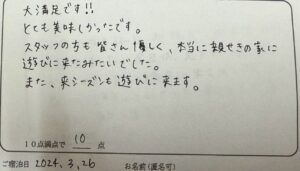 大満足です!!
とても美味しかったです。
スタッフの方も皆さん優しく、本当に親せきの家に
遊びに来たみたいでした。
また、来シーズンも遊びに来ます。
10点満点で 10 点
ご宿泊日 2024.3.26 お名前(匿名可)